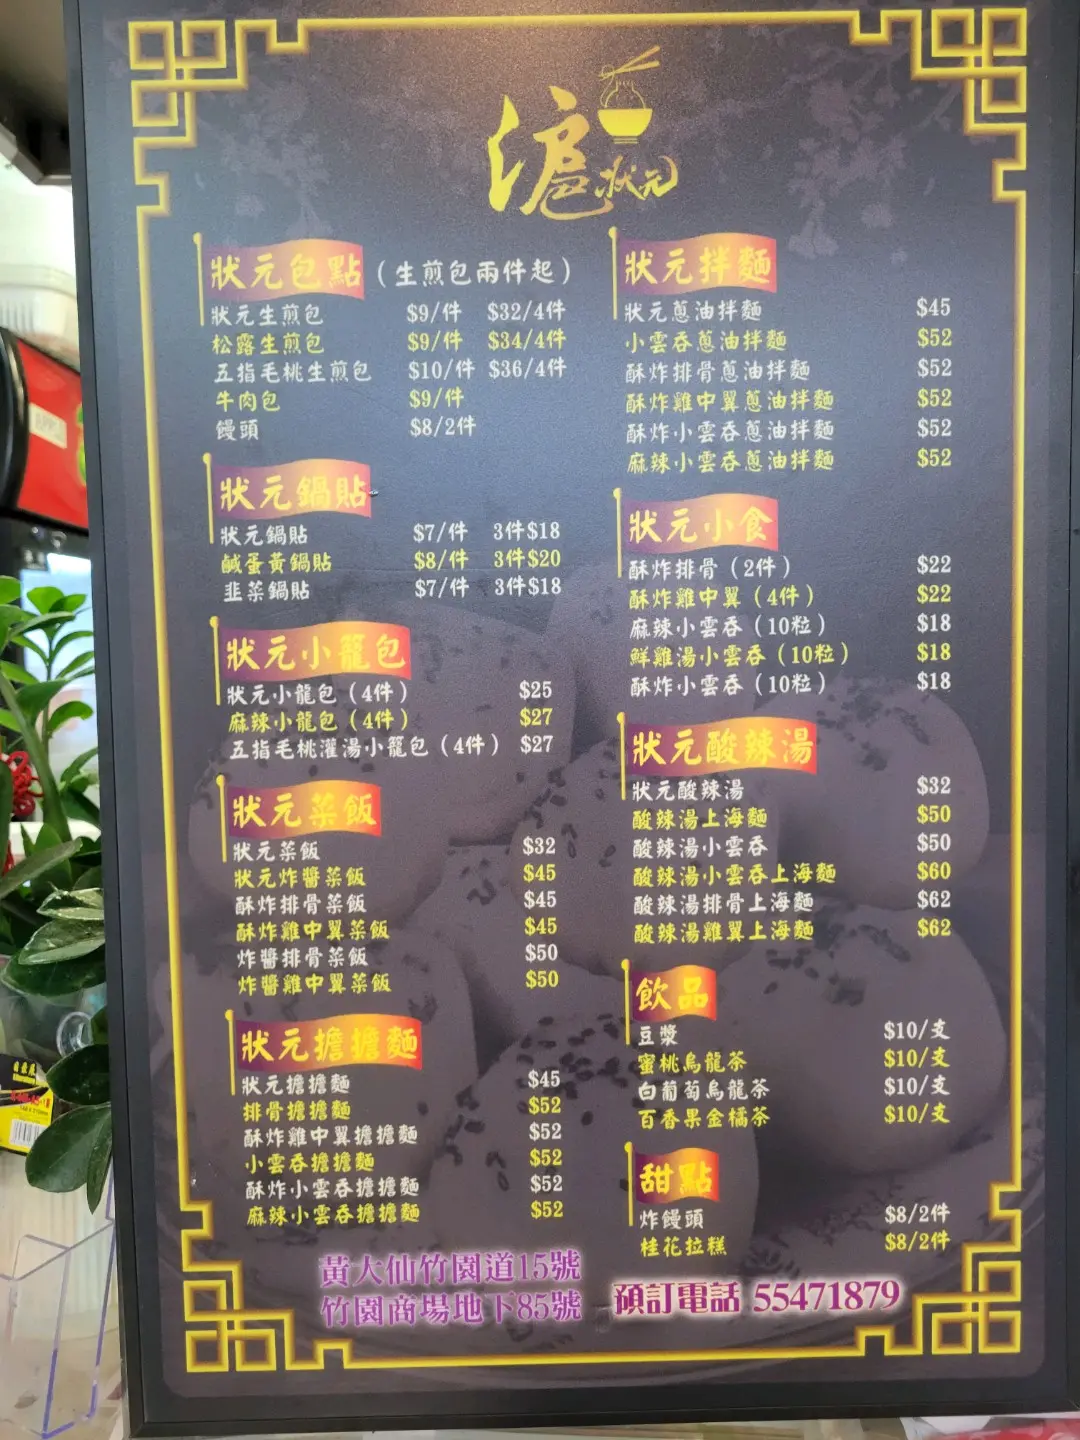 滬狀元
狀元包點（生煎包兩件起）
狀元生煎包 $9/件 $32/4件
松露生煎包 $9/件 $34/4件
五指毛桃生煎包 $10/件 $36/4件
牛肉包 $9/件
饅頭 $8/2件
狀元鍋貼
狀元鍋貼 $7/件 3件$18
鹹蛋黃鍋貼 $8/件 3件$20
韭菜鍋貼 $7/件 3件$18
狀元小籠包
狀元小龍包（4件） $25
麻辣小龍包（4件） $27
五指毛桃灌湯小籠包（4件） $27
狀元菜飯
狀元菜飯 $32
狀元炸醬菜飯 $45
酥炸排骨菜飯 $45
酥炸雞中翼菜飯 $45
炸醬排骨菜飯 $50
炸醬雞中翼菜飯 $50
狀元擔擔麵
狀元擔擔麵 $45
排骨擔擔麵 $52
酥炸雞中翼擔擔麵 $52
小雲吞擔擔麵 $52
酥炸小雲吞擔擔麵 $52
麻辣小雲吞擔擔麵 $52
狀元拌麵
狀元蔥油拌麵 $45
小雲吞蔥油拌麵 $52
酥炸排骨蔥油拌麵 $52
酥炸雞中翼蔥油拌麵 $52
酥炸小雲吞蔥油拌麵 $52
麻辣小雲吞蔥油拌麵 $52
狀元小食
酥炸排骨（2件） $22
酥炸雞中翼（4件） $22
麻辣小雲吞（10粒） $18
鮮雞湯小雲吞（10粒） $18
酥炸小雲吞（10粒） $18
狀元酸辣湯
狀元酸辣湯 $32
酸辣湯上海麵 $50
酸辣湯小雲吞 $50
酸辣湯小雲吞上海麵 $60
酸辣湯排骨上海麵 $62
酸辣湯雞翼上海麵 $62
飲品
豆漿 $10/支
蜜桃烏龍茶 $10/支
白葡萄烏龍茶 $10/支
百香果金橘茶 $10/支
甜點
炸饅頭 $8/2件
桂花拉糕 $8/2件
黃大仙竹園道15號
竹園商場地下85號
預訂電話 55471879